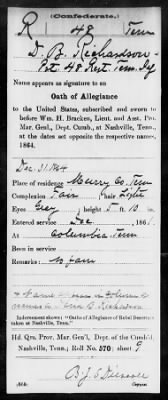 (Confederate.)
R 48 Tenn
D. B. Richardson
Pvt 48 Regt. Tenn. Inf
Name appears as signature to an
Oath of Allegiance
to the United States, subscribed and sworn to
before Wm. H. Bracken, Lieut. and Asst. Pro.
Mar. Genl., Dept. Cumb., at Nashville, Tenn.,
at the dates set opposite the respective names,
1864.
Dec. 31, 1864
Place of residence Maury Co. Tenn
Complexion Fair hair Light
Eyes Grey height 5 ft. 10 in.
Entered service Dec 186
At Columbia Tenn
Been in service
Remarks
Name
B. Richardson
Indorsement shows: "Oaths of Allegiance of Rebel Deserters
taken at Nashville, Tenn."
Hd. Qrs. Pro. Mar. Gen'l, Dept. of the Cumb'd,
Nashville, Tenn.; Roll No. 570; sheet 9
B. J. S. Driscoll
Copyist.